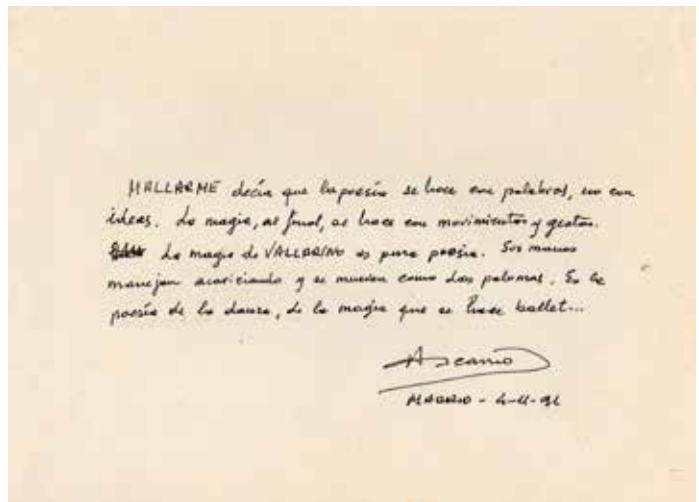 MALLARME decía que la poesía se hace con palabras, no con
ideas. La magia, al final, se hace con movimientos y gestos.
La magia de VALLARINO es pura poesía. Sus manos
manejan acariciando y se mueven como dos palomas. Es la
poesía de la danza, de la magia que se hace ballet...
Ascanio
MADRID -